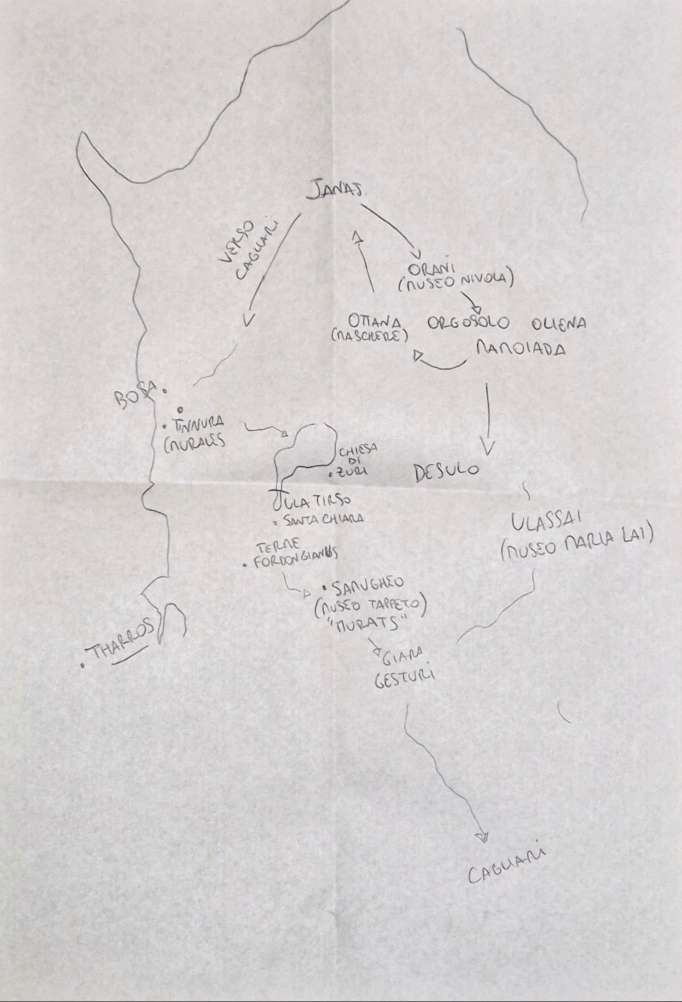 JANAS
VERSO
CAGLIARI
ORANI
(MUSEO NIVOLA)
OTTANA
(MASCHERE)
ORGOSOLO OLIENA
MAMOIADA
BOSA
TINNURA
(MURALES
CHIESA
DI
ZURI
DESULO
ULA TIRSO
SANTA CHIARA
ULASSAI
(MUSEO MARIA LAI)
TERME
FORDONGIANUS
SAMUGHEO
(MUSEO TAPPETO)
"MURATS"
THARROS
GIARA
GESTURI
CAGLIARI